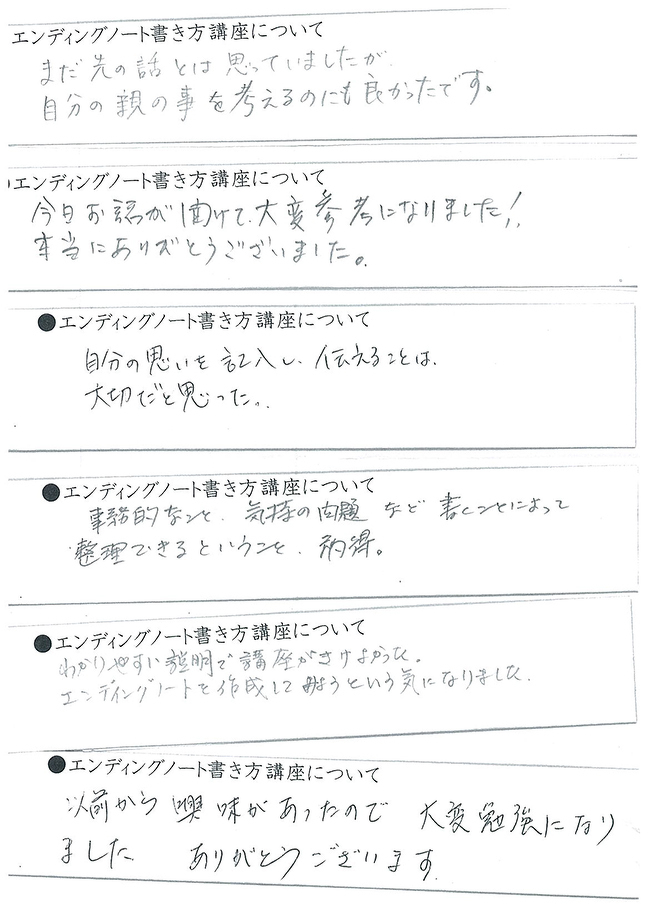 エンディングノート書き方講座について
まだ先の話とは思っていましたが
自分の親の事を考えるのにも良かったです。
エンディングノート書き方講座について
今日お話が聞けて、大変参考になりました!!
本当にありがとうございました。
●エンディングノート書き方講座について
自分の思いを記入し、伝えることは、
大切だと思った。
●エンディングノート書き方講座について
事務的なこと、気持の問題 など 書くことによって
整理できるということ、納得。
●エンディングノート書き方講座について
わかりやすい説明で講座がきけよかった。
エンディングノートを作成してみようという気になりました.
●エンディングノート書き方講座について
以前から 興味が あったので 大変勉強になり
ました ありがとうございます.